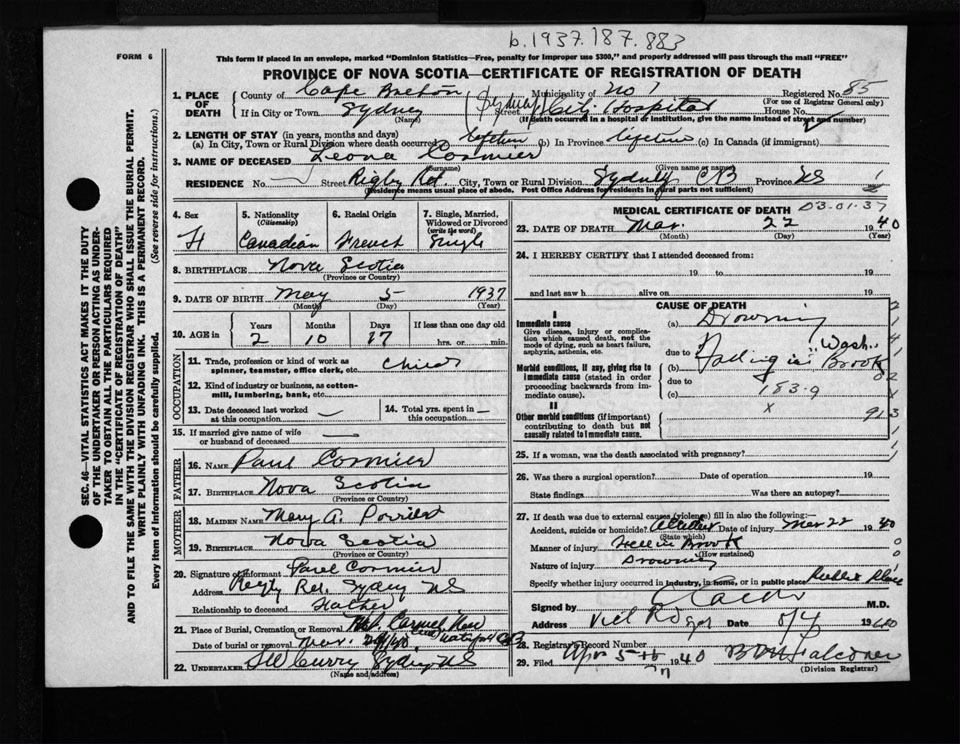 b.1937.187.883
FORM 6
This form if placed in an envelope, marked "Dominion Statistics—Free, penalty for improper use $300," and properly addressed will pass through the mail "FREE"
PROVINCE OF NOVA SCOTIA—CERTIFICATE OF REGISTRATION OF DEATH
SEC. 46—VITAL STATISTICS ACT MAKES IT THE DUTY
OF THE UNDERTAKER OR PERSON ACTING AS UNDER-
TAKER TO OBTAIN ALL THE PARTICULARS REQUIRED
IN THE "CERTIFICATE OF REGISTRATION OF DEATH"
AND TO FILE THE SAME WITH THE DIVISION REGISTRAR WHO SHALL ISSUE THE BURIAL PERMIT.
WRITE PLAINLY WITH UNFADING INK. THIS IS A PERMANENT RECORD.
Every item of Information should be carefully supplied. (See reverse side for instructions.)
1. PLACE OF DEATH
County of Cape Breton Municipality of No 1 Registered No. 85
(For use of Registrar General only)
If in City or Town Sydney (Name) Street Sydney City Hospital House No.
(If death occurred in a hospital or institution, give the name instead of street and number)
2. LENGTH OF STAY (in years, months and days)
(a) In City, Town or Rural Division where death occurred lifetime (b) In Province lifetime (c) In Canada (if immigrant)
3. NAME OF DECEASED Leona Cormier
(Surname) (Given name or names)
RESIDENCE No. Street Rigby Rd. City, Town or Rural Division Sydney CB Province NS
(Residence means usual place of abode. Post Office Address for rural parts not sufficient)
4. Sex F
5. Nationality (Citizenship) Canadian
6. Racial Origin French
7. Single, Married, Widowed or Divorced (write the word) Single
8. BIRTHPLACE Nova Scotia
(Province or Country)
9. DATE OF BIRTH May 5 1937
(Month) (Day) (Year)
10. AGE in Years 2 Months 10 Days 17 If less than one day old hrs. or min.
OCCUPATION
11. Trade, profession or kind of work as spinner, teamster, office clerk, etc. Child
12. Kind of industry or business, as cotton-mill, lumbering, bank, etc.
13. Date deceased last worked at this occupation — 14. Total yrs. spent in this occupation —
15. If married give name of wife or husband of deceased —
FATHER
16. NAME Paul Cormier
17. BIRTHPLACE Nova Scotia
(Province or Country)
MOTHER
18. MAIDEN NAME Mary A.
19. BIRTHPLACE Nova Scotia
(Province or Country)
20. Signature of Informant Paul Cormier
Address Rd. Sydney NS
Relationship to deceased Father
21. Place of Burial, Cremation or Removal Mt. Carmel
Date of burial or removal Mar.
22. UNDERTAKER Curry Sydney NS
(Name and address)
MEDICAL CERTIFICATE OF DEATH D3-01-37
23. DATE OF DEATH Mar. 22 1940
(Month) (Day) (Year)
24. I HEREBY CERTIFY that I attended deceased from:
19 to 19
and last saw h alive on 19
CAUSE OF DEATH
I
Immediate cause
Give disease, injury or complication which caused death, not the mode of dying, such as heart failure, asphyxia, asthenia, etc.
(a) Drowning
due to
Morbid conditions, if any, giving rise to immediate cause (stated in order proceeding backwards from immediate cause).
(b) Falling in "Wash Brook"
due to
(c) 183.9
II
Other morbid conditions (if important) contributing to death but not causally related to immediate cause.
x
25. If a woman, was the death associated with pregnancy?
26. Was there a surgical operation? Date of operation 19
State findings Was there an autopsy?
27. If death was due to external causes (violence) fill in also the following:—
Accident, suicide or homicide? Accident Date of injury Mar 22 1940
(State which)
Manner of injury Fell in Brook
(How sustained)
Nature of injury Drowning
Specify whether injury occurred in industry, in home, or in public place Public Place
Signed by M.D.
Address Vict Rd Syd Date 8/4 1940
28. Registrar's Record Number
29. Filed Apr 1940 Falconer
(Division Registrar)